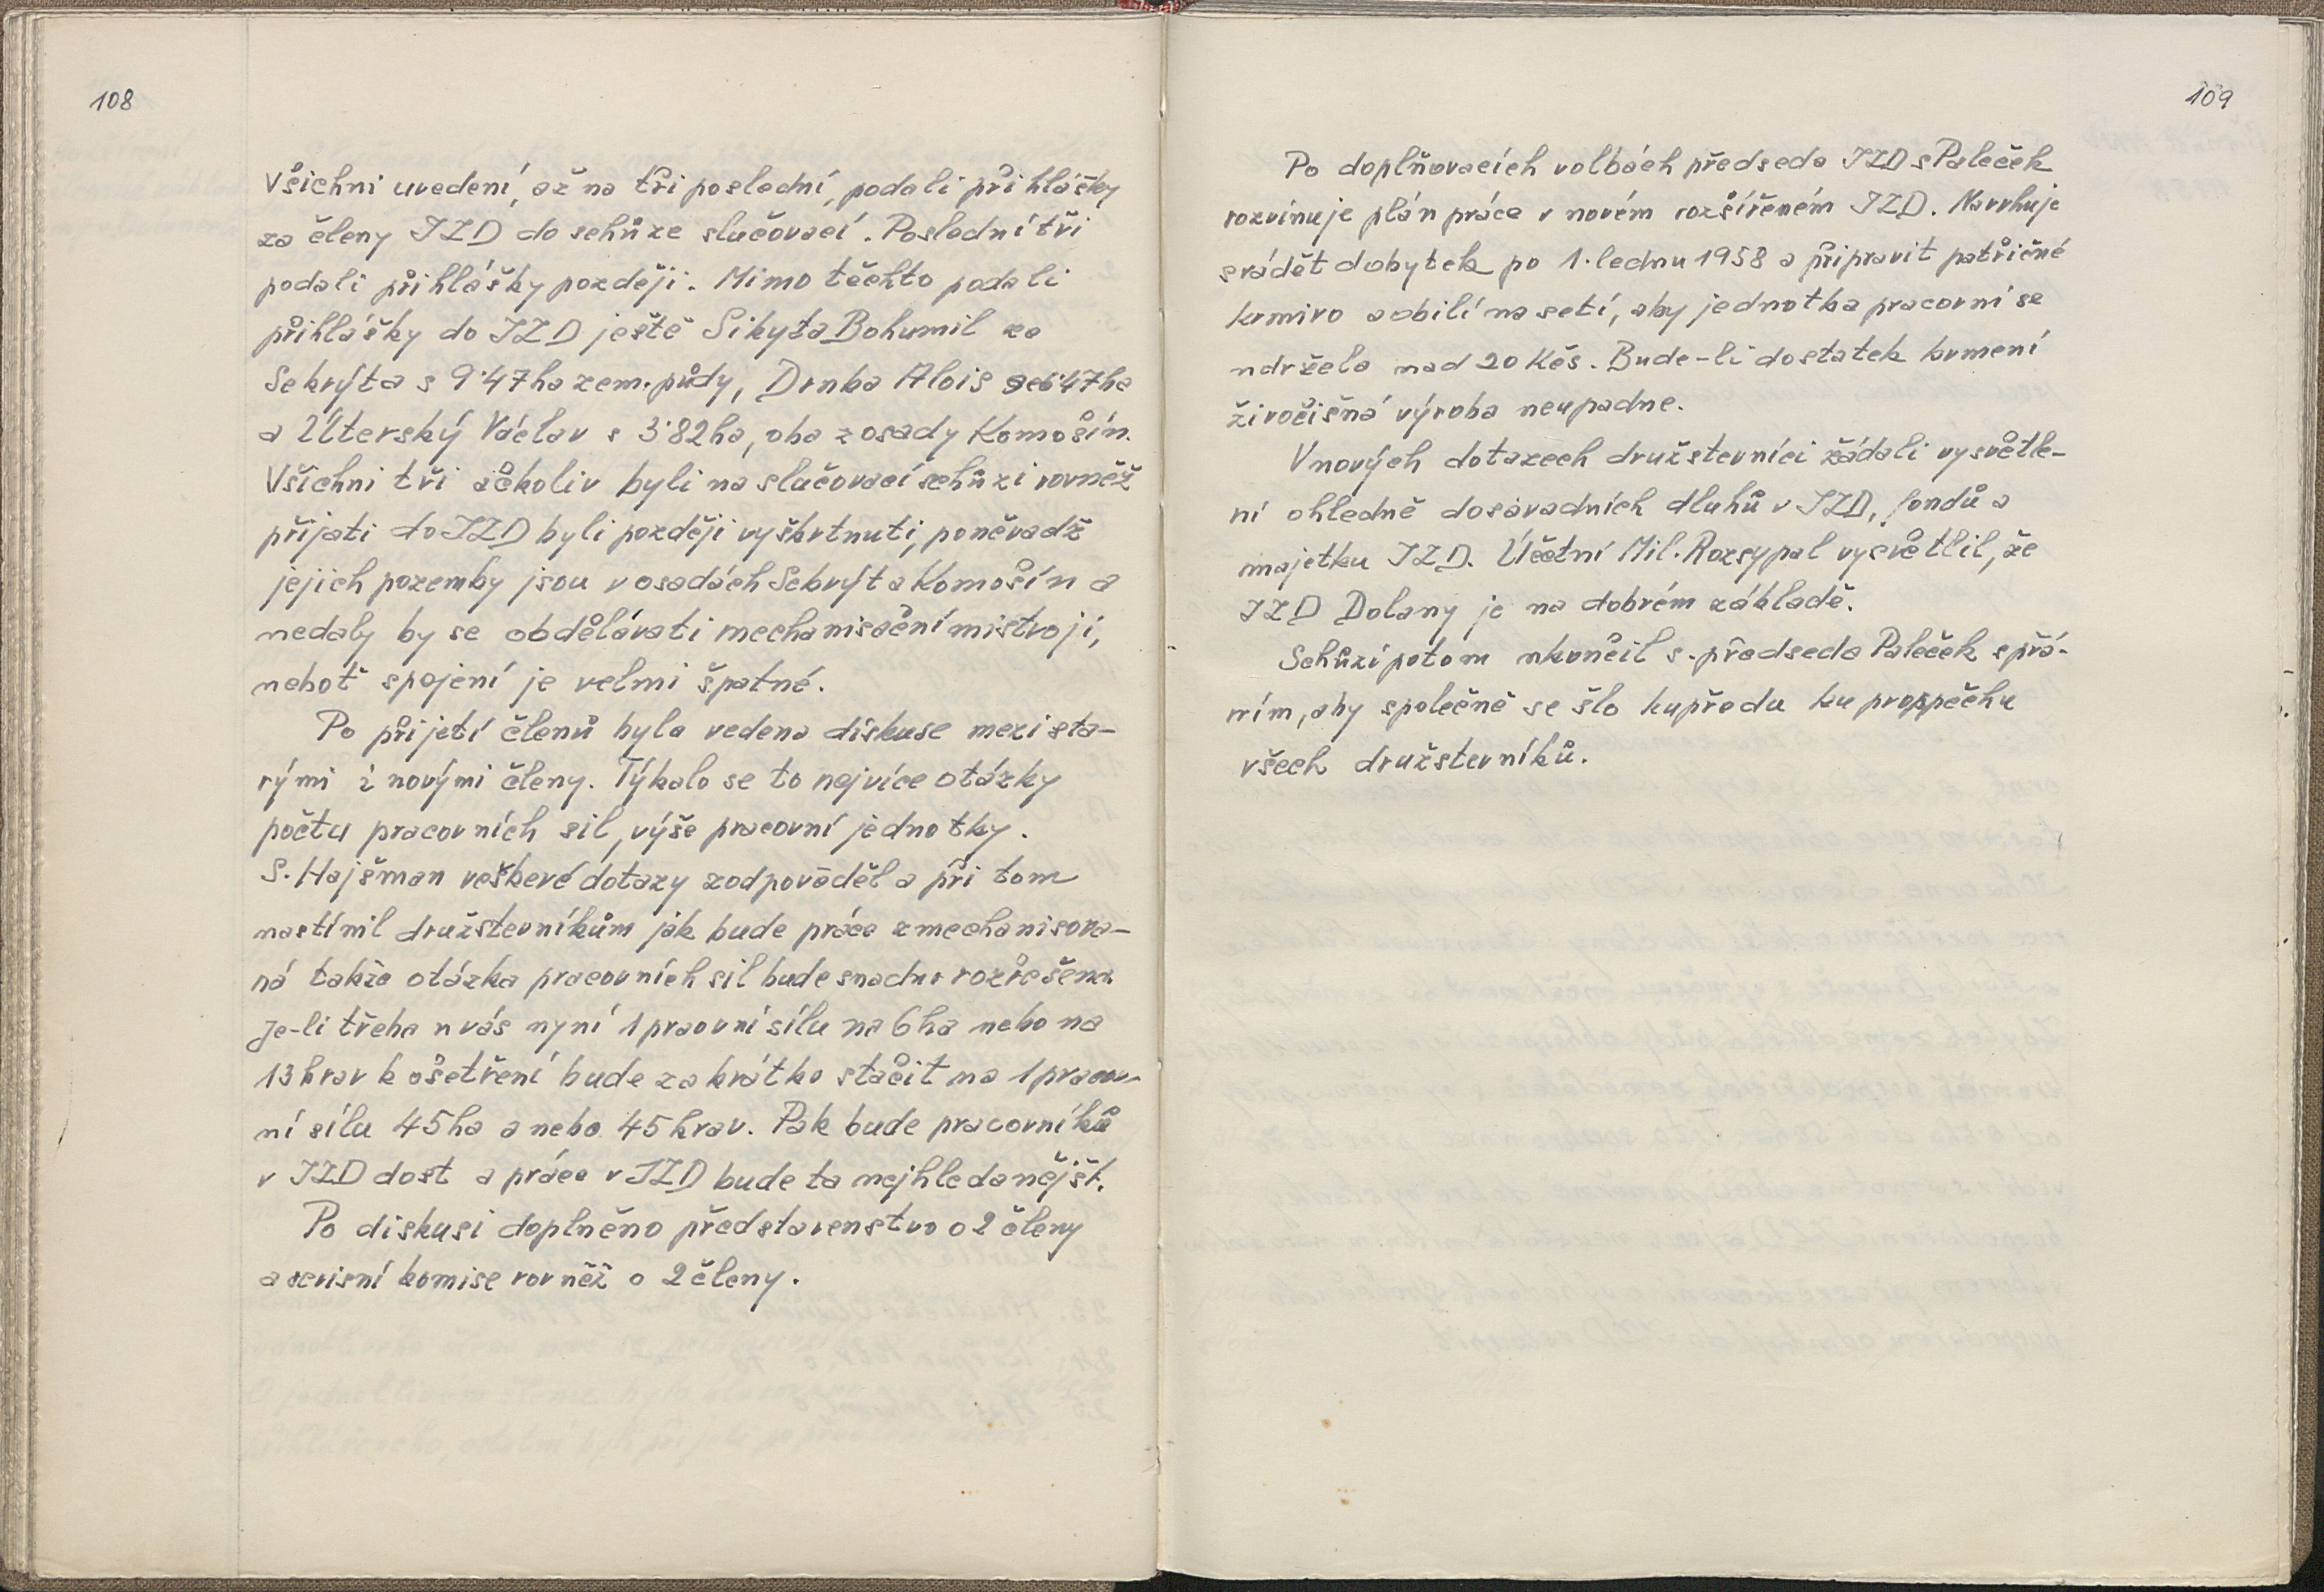 108
Všichni uvedení, až na tři poslední, podali přihlášky
za členy JZD do schůze slučovací. Poslední tři
podali přihlášky později. Mimo těchto podali
přihlášky do JZD ještě Sikyta Bohumil ze
Sekrýta s 9·47 ha zem. půdy, Drnba Alois se 6·47 ha
a Úterský Václav s 3·82 ha, oba z osady Komošín.
Všichni tři ačkoliv byli na slučovací schůzi rovněž
přijati do JZD byli později vyškrtnuti, poněvadž
jejich pozemky jsou v osadách Sekrýt a Komošín a
nedaly by se obdělávati mechanisačními stroji,
neboť spojení je velmi špatné.
Po přijetí členů byla vedena diskuse mezi sta-
rými i novými členy. Týkalo se to nejvíce otázky
počtu pracovních sil, výše pracovní jednotky.
S. Hajšman veškeré dotazy zodpověděl a při tom
nastínil družstevníkům jak bude práce zmechanisova-
ná takže otázka pracovních sil bude snadno rozřešena.
Je-li třeba u vás nyní 1 praovní sílu na 6 ha nebo na
13 krav k ošetření bude za krátko stačit na 1 pracov-
ní sílu 45 ha a nebo 45 krav. Pak bude pracovníků
v JZD dost a práce v JZD bude ta nejhledanější.
Po diskusi doplněno představenstvo o 2 členy
a revisní komise rovněž o 2 členy.
109
Po doplňovacích volbách předseda JZD s Paleček
rozvinuje plán práce v novém rozšířeném JZD. Navrhuje
svádět dobytek po 1. lednu 1958 a připravit patřičné
krmivo a obilí na setí, aby jednotka pracovní se
udržela nad 20 Kčs. Bude-li dostatek krmení
živočišná výroba neupadne.
V nových dotazech družstevníci žádali vysvětle-
ní ohledně dosavadních dluhů v JZD, fondů a
majetku JZD. Účetní Mil. Rozsypal vysvětlil, že
JZD Dolany je na dobrém základě.
Schůzi potom ukončil s. předseda Paleček s přá-
ním, aby společně se šlo kupředu ku prospěchu
všech družstevníků.